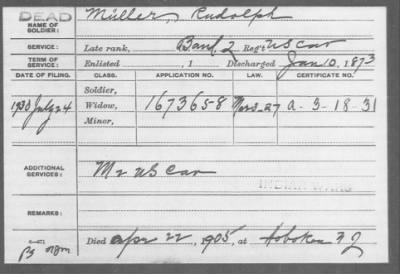 DEAD
NAME OF SOLDIER: Müller, Rudolph
SERVICE: Late rank, Band, 2 Reg't US Cav
TERM OF SERVICE: Enlisted , 1 Discharged Jan 10, 1873
DATE OF FILING. CLASS. APPLICATION NO. LAW. CERTIFICATE NO.
Soldier,
1930 July 24 Widow, 1673658 Mar 3-27 a-3-18-31
Minor,
ADDITIONAL SERVICES: M 2 US Cav
INDIAN WARS
REMARKS:
Died Apr 22, 1905, at Hoboken NJ